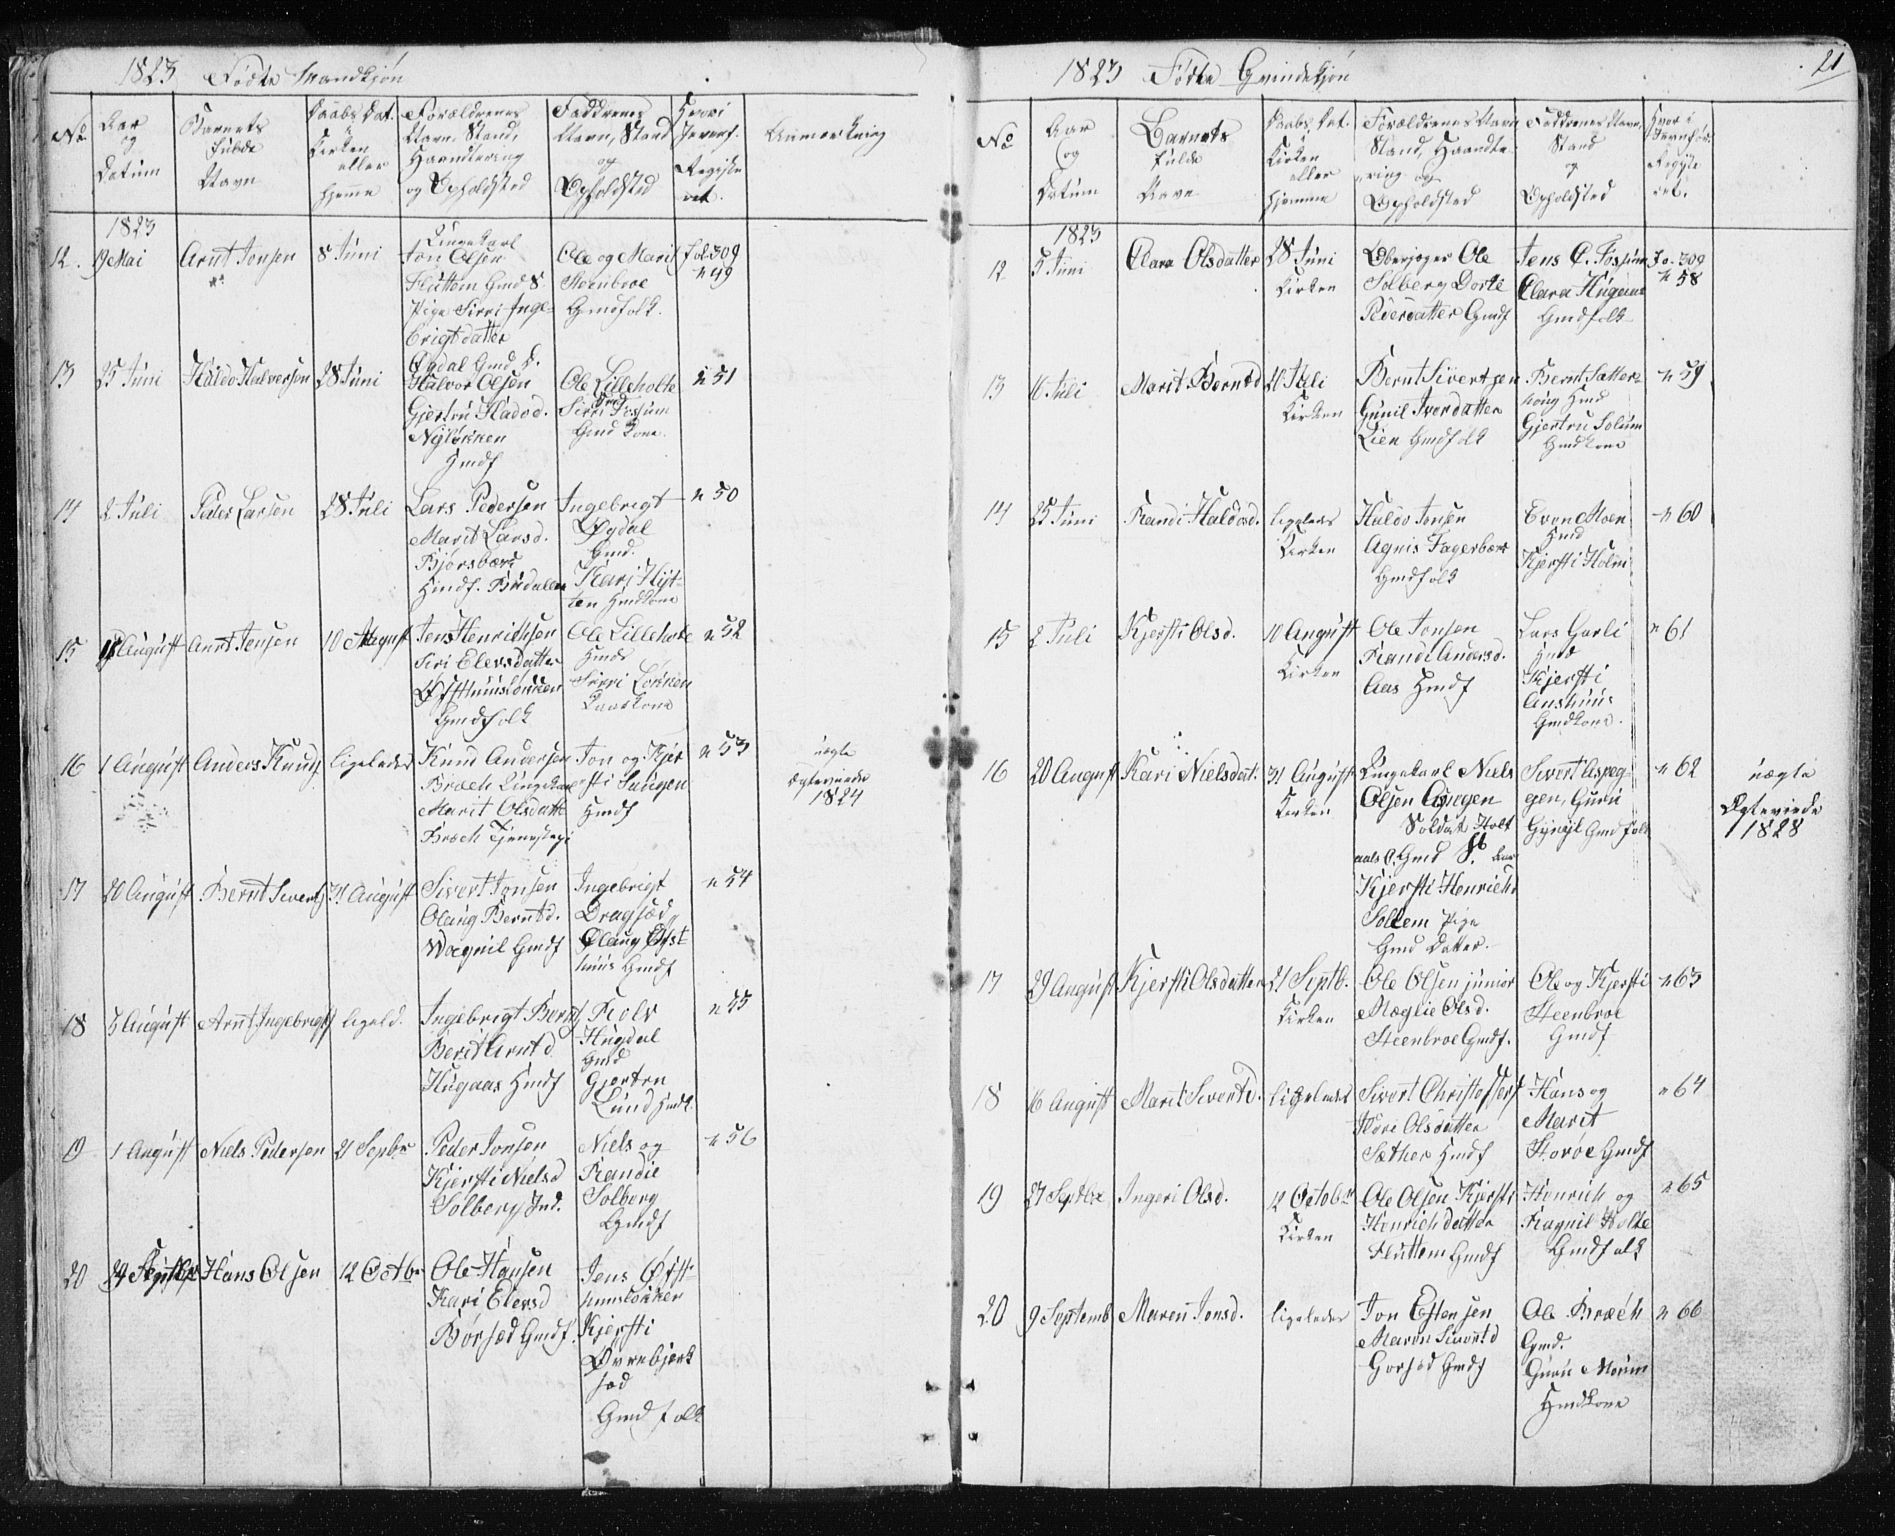 1823 Fødte Mandkjøn
No
Aar
og
Datum
Barnets
fulde
Navn
Daabs Dat.
i
Kirken
eller
hjemme
Forældrenes
Navn, Stand,
Haandtering
og Opholdsted
Faddernes
Navn, Stand
og
Opholdsted
Hvori
Jevnf.
Registe
ret.
Anmærkning
1823
12. 19 Mai Arnt Jonsen 8 Juni
Ungekarl
Jon Olsen
Fluttem Gmd S.
Pige Sirri Inge-
brigtdatter
Øydal Gmd D.
Ole og Marit
Steenbroe
Gmdfolk.
Fol. 309
n 49
13 25 Juni Haldo Halvorsen 28 Juni
Halvor Olsen
Gjertru Hadod.
Nyløkken
Hmdf
Ole Lilleholte
Gmd
Sirri Fossum
Gmd Kone.
n 51
14 2 Juli Peder Larsen 28 Juli
Lars Pedersen
Marit Larsd.
Bjørsbæ
Hmdf. Budalen
Ingebrigt
Øydal
Gmd.
Kari Hyt-
ten Hmdkone
n 50
15 18 August Arnt Jensen 10 August
Jens Henrichsen
Siri Elevsdatter
Østhuusløkken
Gmdfolk
Ole Lilleholte
Hmd
Sirri Løkken
Kaarkone
n 52
16 1 August Anders Knuds ligeledes
Knud Andersen
Bræch Ungekarl
Marit Olsdatt
Bræch Tjenestepi
Jon og Kjer
sti Singen
Hmdf
n 53
uægte
Ægteviede
1824
17 20 August Bernt Sivertf 31 August
Sivert Jonsen
Olaug Berntd.
Wognil Gmdf
Ingebrigt
Dragsæd,
Olaug Øyst
huus Gmdf
n 54
18 3 August Arnt Ingebrigtf ligeld.
Ingebrigt Berntf
Berit Arntd
Hugaas Hmdf
Rolv
Hugdal
Gmd
Gjertru
Lund Hmdk
n 55
19 1 August Niels Pedersen 21 Septbr
Peder Jonsen
Kjersti Nielsd
Solberg Ind.
Niels og
Randie
Solberg
Gmdf
n 56
20 24 Septbr Hans Olsen 12 Octbr
Ole Hansen
Kari Elevsd
Børsæd Gmdf.
Jens Øst-
huusløkker
Kjersti
Øvrebjerk
sæd
Gmdfolk
1823 Fødte Qvindekjøn
21
No
Aar
og
Datum
Barnets
fulde
Navn
Daabs. Dat.
Kirken
eller
hjemme
Forældrenes Navn
Stand, Haandte
ring og
Opholdsted
Faddernes Navn,
Stand
og
Opholdsted
Hvor i
Jevnfør.
Registe
ret.
1823
12 5 Juni Clara Olsdatter 28 Juni
Kirken
Oberjæger Ole
Solberg Dorte
Pedersdatter Gmdf
Jens C. Fossum
Clara Hugaas
Gmdfolk
Fo. 309
n 58
13 16 Juli Marit Berntd 20 Juli
Kirken
Bernt Sivertsen
Gunil Ivordatter
Lien Gmdfolk
Bernt Satter
houg Hmd
Gjertru Solum
Gmdkone
n 59
14 25 Juni Randi Haldosd. ligeledes
Kirken
Haldo Jonsen
Agnis Fagerbær
Gmdfolk
Even Moen
Hmd
Kjersti Holm
n 60
15 2 Juli Kjersti Olsd. 10 August
Kirken
Ole Jonsen
Randi Andersd.
Aas Hmdf
Lars Garli
Hmd
Kjersti
Aushuus
Gmdkone.
n 61
16 20 August Kari Nielsdat. 31 August
Kirken
Ungekarl Niels
Olsen Aspegen
Soldat Holt
aals C. Gmd S.
Kjersti Henrich
Sollem Pige
Gmd Datter.
Sivert Aspeg-
gen, Guru
Gynnil Gmdfolk
n 62
uægte
Ægteviede
1828
17 29 August Kjersti Olsdatter 21 Septb.
Kirken
Ole Olsen junior
Mæglie Olsd.
Steenbroe Gmdf.
Ole og Kjersti
Steenbroe
Gmdf
n 63
18 16 August Marit Sivertd. ligeledes
Sivert Christoffers
Kari Olsdatter
Sæther Hmdf
Hans og
Marit
Storøe Gmdf
n 64
19 27 Septbr Ingeri Olsd. 12 Octobr
Kirken
Ole Olsen Kjersti
Henrichdatter
Fluttem Gmdf
Henrich og
Ragnil Holte
Gmdfolk
n 65
20 9 Septemb Maren Jonsd. ligeledes
Jon Estensen
Maren Sivertd
Gorsæd Gmdf
Ole Bræch
Gmd.
Guru Morum
Hmdkone
n 66